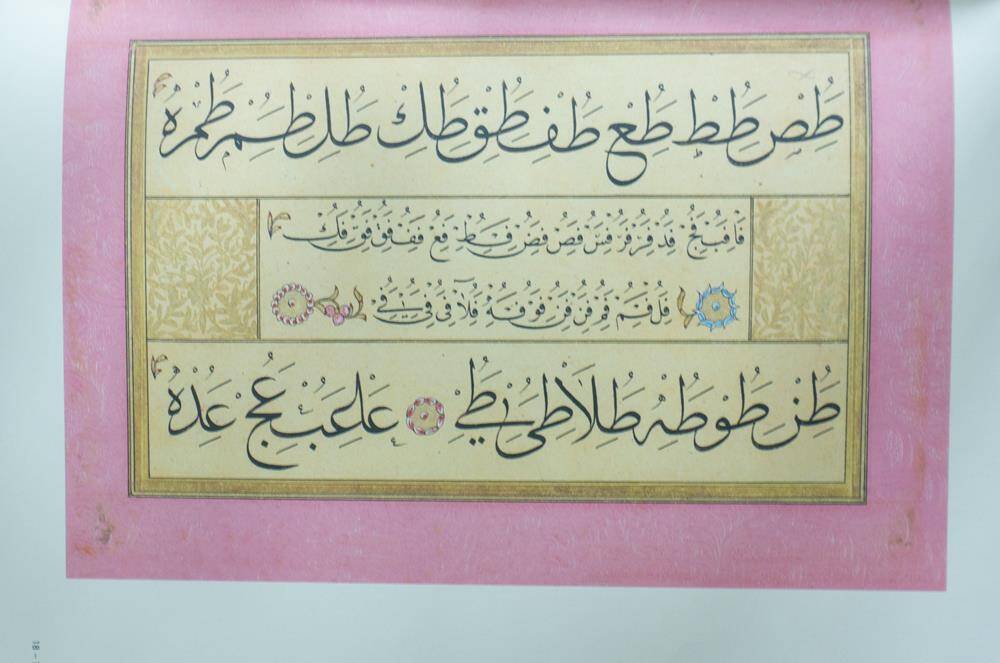 طص طط طع طف طق طك طل طم طمره
فا فب فج فد فر فر فس فص فض فط فع فف فق فق فك
فل فم فمر فن فن فو فه فلا فى فى
طن طو طه طلا طى طي عا عب عج عده